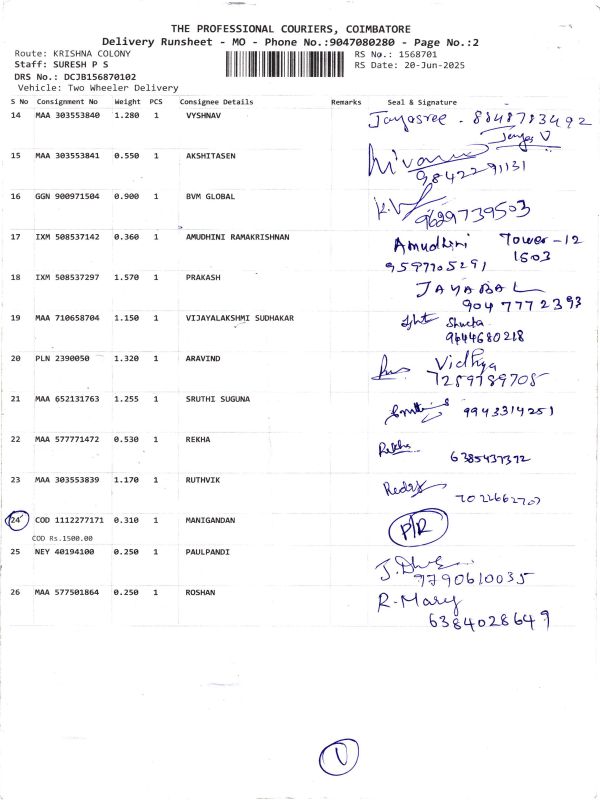 THE PROFESSIONAL COURIERS, COIMBATORE
Delivery Runsheet - MO - Phone No.:9047080280 - Page No.:2
Route: KRISHNA COLONY RS No.: 1568701
Staff: SURESH P S RS Date: 20-Jun-2025
DRS No.: DCJB156870102
Vehicle: Two Wheeler Delivery
S No Consignment No Weight PCS Consignee Details Remarks Seal & Signature
14 MAA 303553840 1.280 1 VYSHNAV Jayasree - 8848783492
15 MAA 303553841 0.550 1 AKSHITASEN 9842291131
16 GGN 900971504 0.900 1 BVM GLOBAL 9629739503
17 IXM 508537142 0.360 1 AMUDHINI RAMAKRISHNAN Amudhini Tower-12
9597705291 1503
18 IXM 508537297 1.570 1 PRAKASH JAYABAL
904 7772393
19 MAA 710658704 1.150 1 VIJAYALAKSHMI SUDHAKAR
9644680218
20 PLN 2390050 1.320 1 ARAVIND Vidhya
7259789705
21 MAA 652131763 1.255 1 SRUTHI SUGUNA 9943314251
22 MAA 577771472 0.530 1 REKHA Rekha
6385437372
23 MAA 303553839 1.170 1 RUTHVIK
24 COD 1112277171 0.310 1 MANIGANDAN P/R
COD Rs.1500.00
25 NEY 40194100 0.250 1 PAULPANDI
9790610035
26 MAA 577501864 0.250 1 ROSHAN R. Mary
6384028649